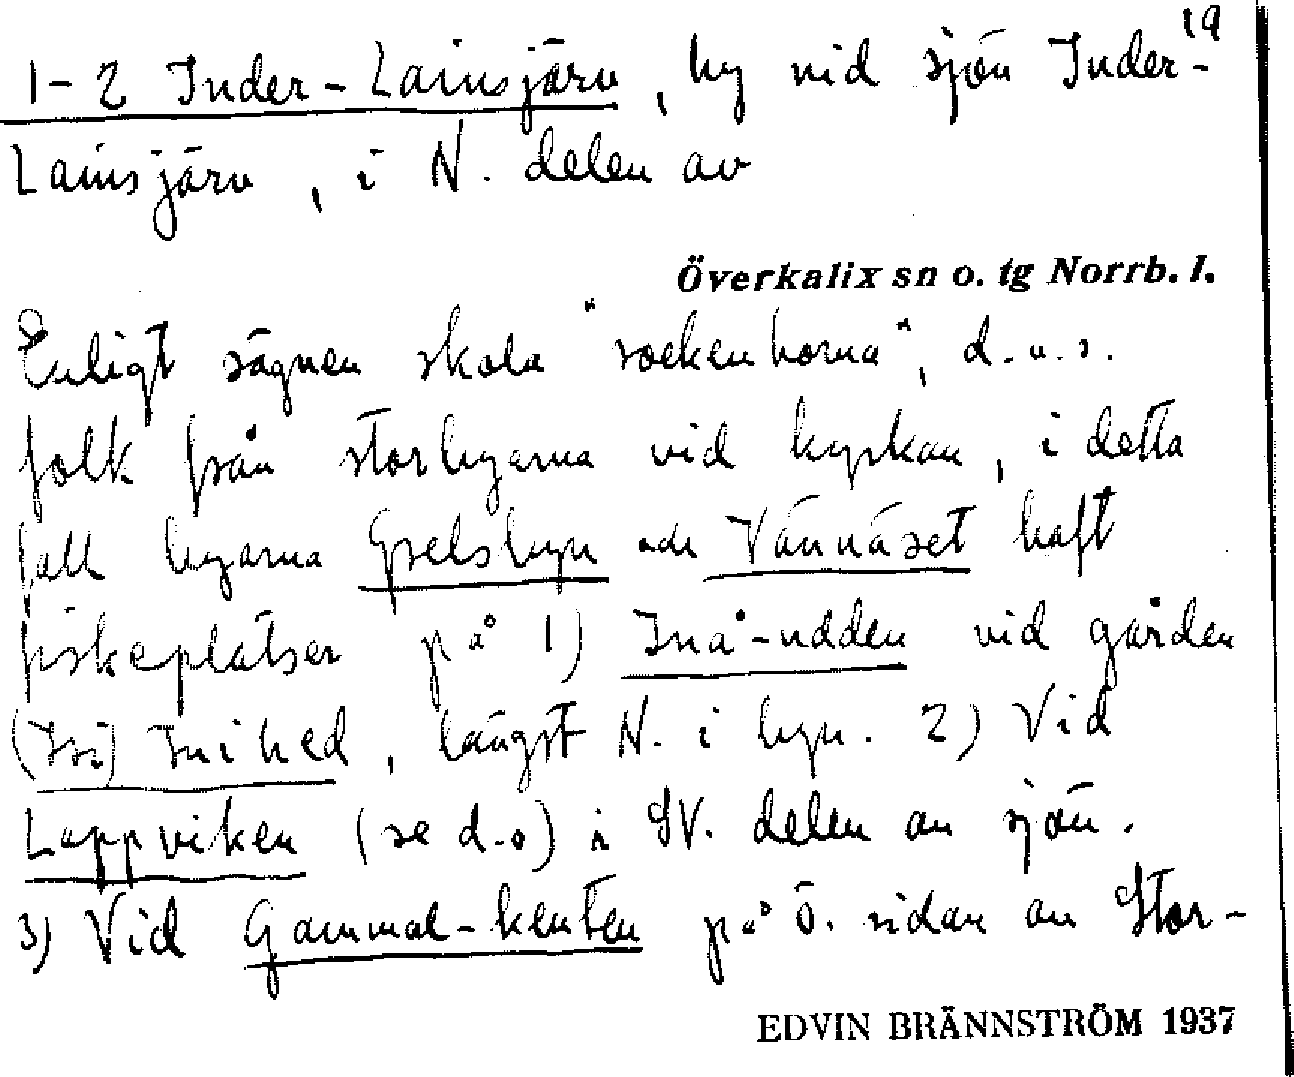 19
1-2 Inder-Lainsjärv, by vid sjön Inder-
Lainsjärv, i N. delen av
Överkalix sn o. tg Norrb. l.
Enligt sägnen skola "sockenborna", d.v.s.
folk från storbyarna vid kyrkan, i detta
fall byarna Grelsbyn och Vännäset haft
fiskeplatser på 1) Inå-udden vid gården
Inihed, längst N. i byn. 2) Vid
Lappviken (se d.o) i SV. delen av sjön.
3) Vid Gammal-kenten på Ö. sidan av Stor-
EDVIN BRÄNNSTRÖM 1937